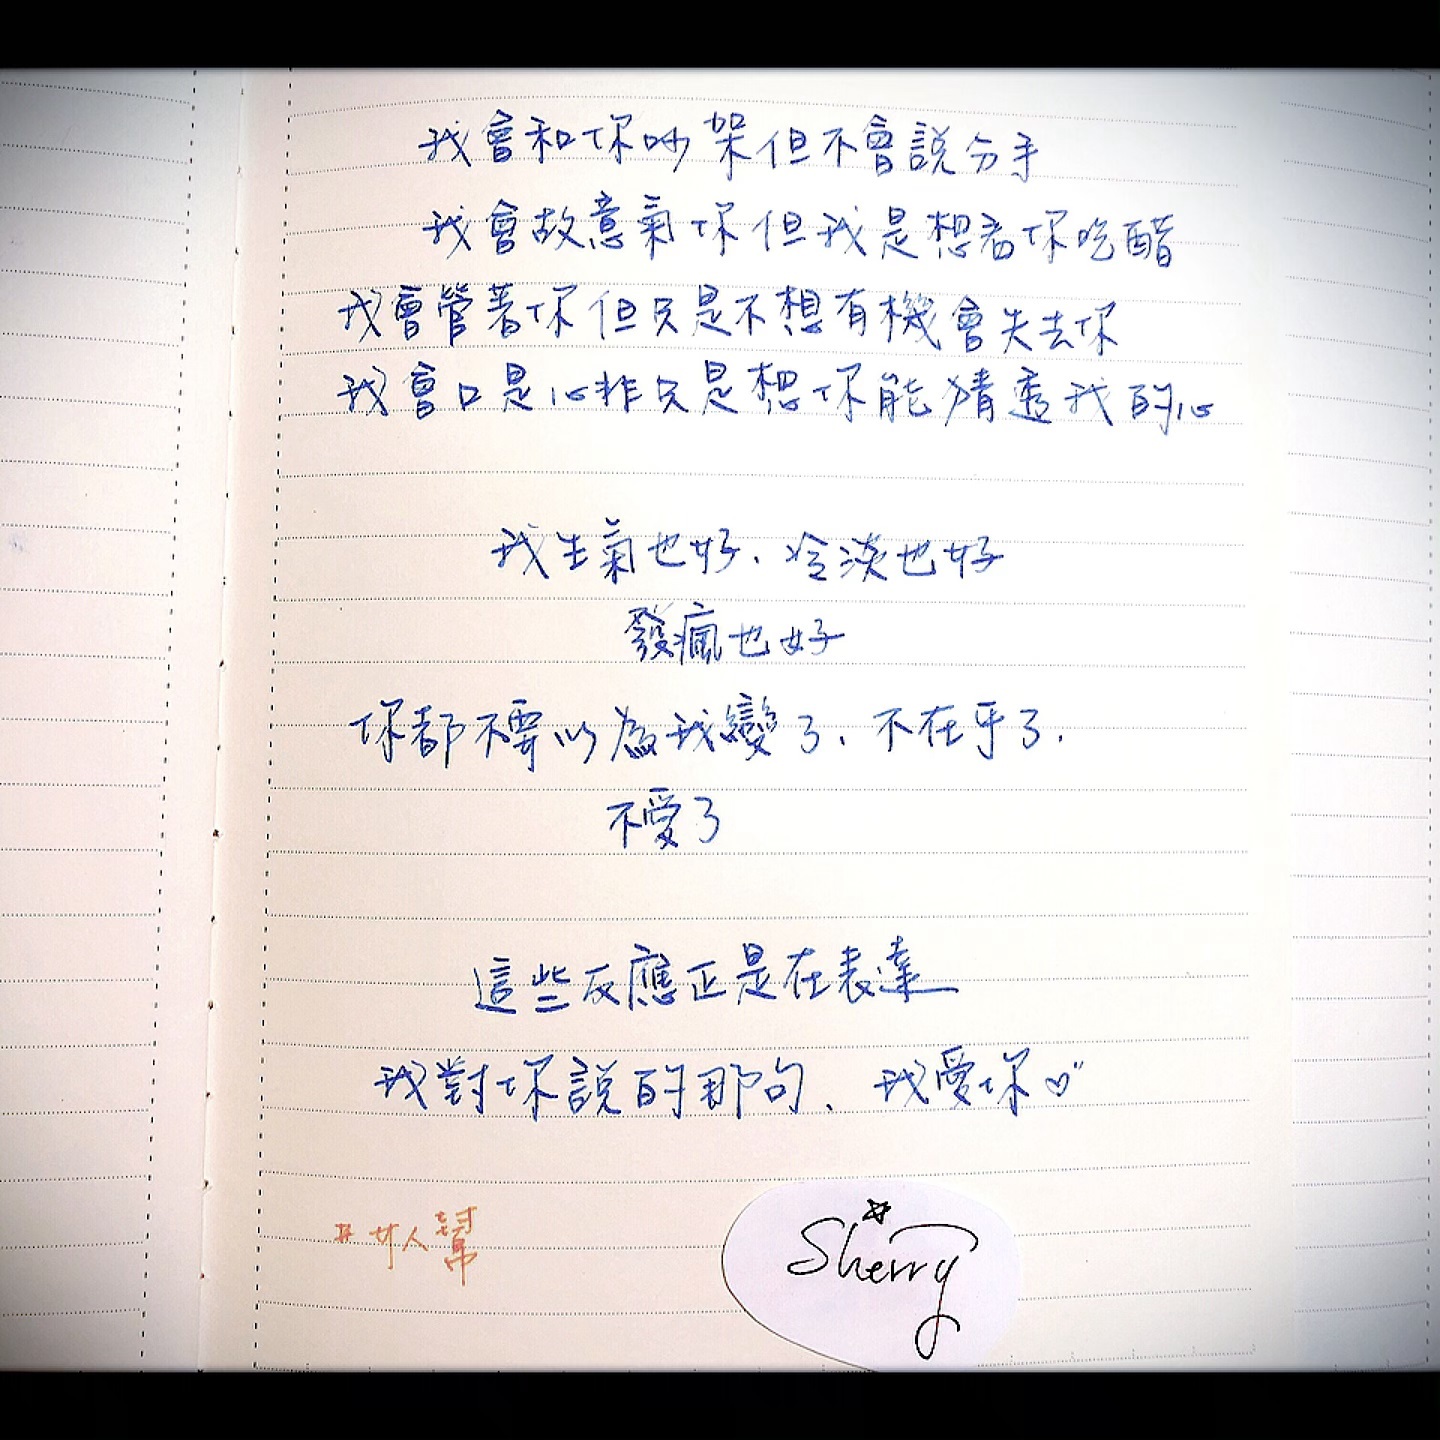 我會和你吵架但不會說分手
我會故意氣你但我是想看你吃醋
我會管著你但只是不想有機會失去你
我會口是心非只是想你能猜透我的心
我生氣也好、冷淡也好
發瘋也好
你都不要以為我變了、不在乎了、
不愛了
這些反應正是在表達
我對你說的那句、我愛你♡
#女人幫
Sherry